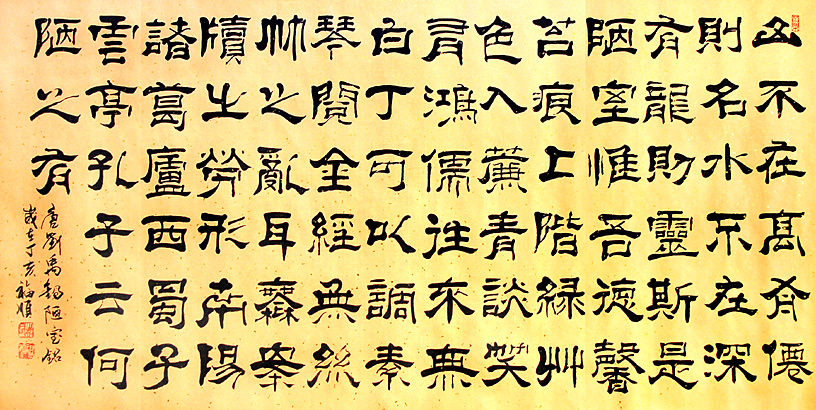 山不在高有僊
則名水不在深
有龍則靈斯是
陋室惟吾德馨
苔痕上階緑艸
色入簾青談笑
有鴻儒往來無
白丁可以調素
琴閱金經無絲
竹之亂耳無案
牘之勞形南陽
諸葛廬西蜀子
雲亭孔子云何
陋之有
唐劉禹錫陋室銘
歲在丁亥福順